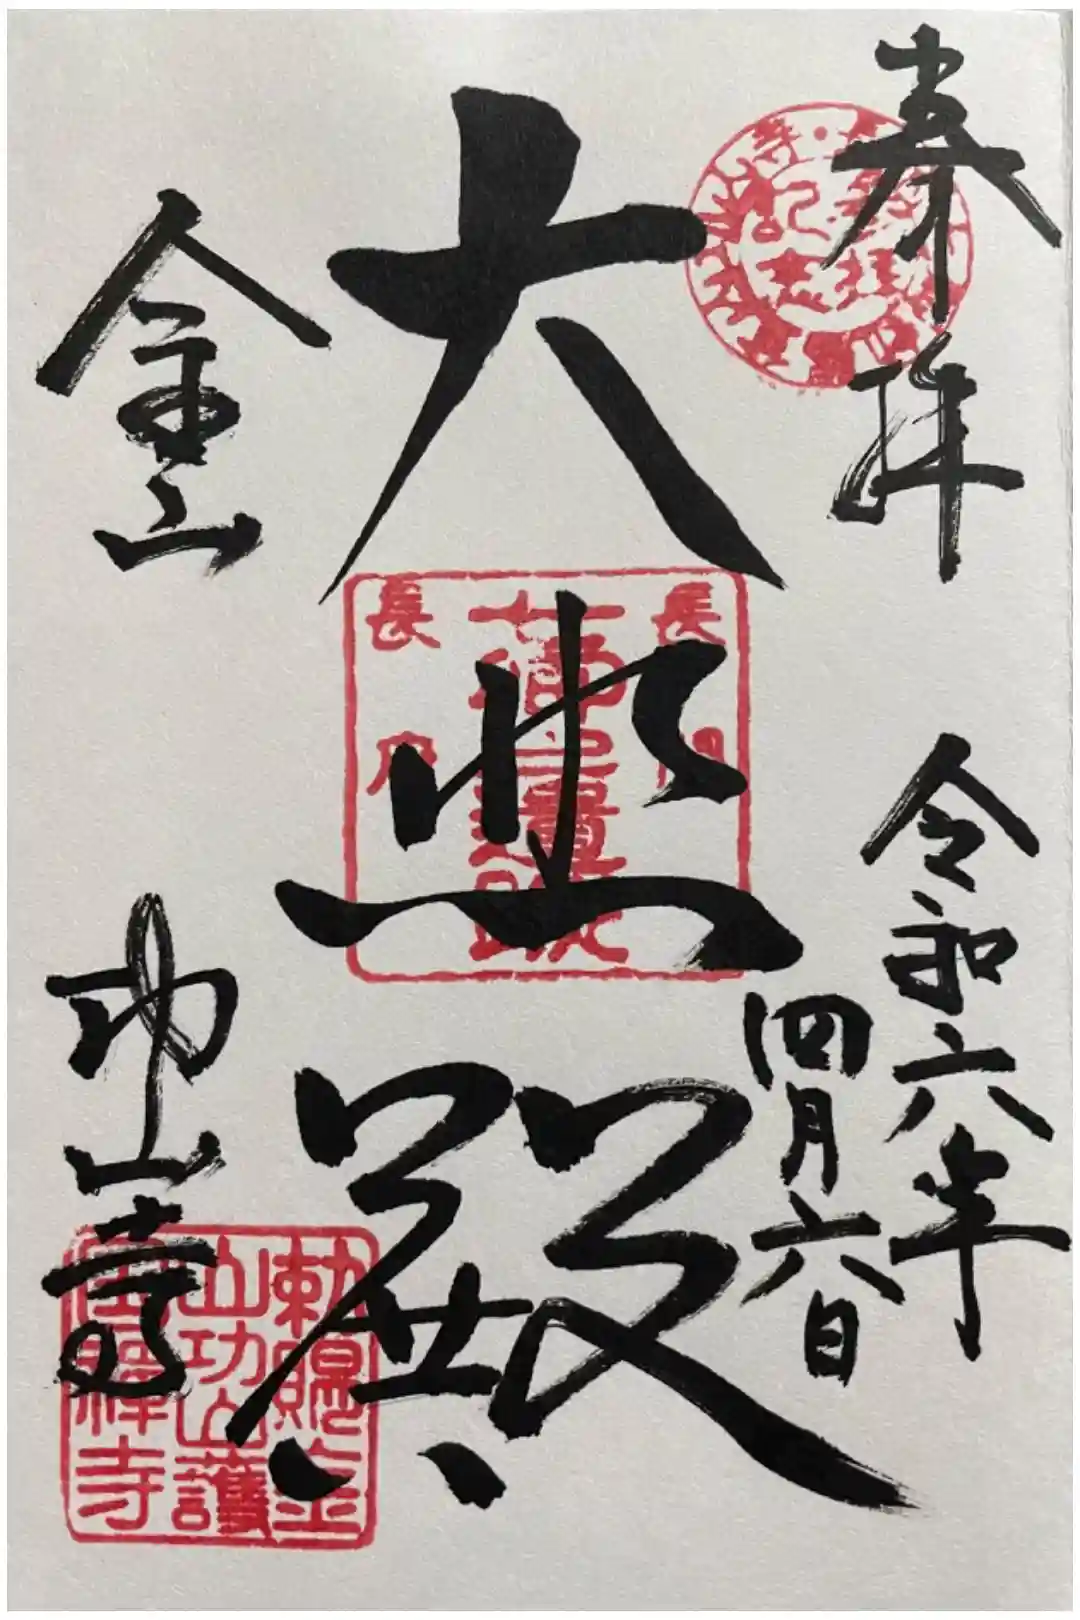 奉拝
令和六年
四月六日
大悲殿
長門
長府
金山
功山寺
勅賜金
山功山護
国禅寺